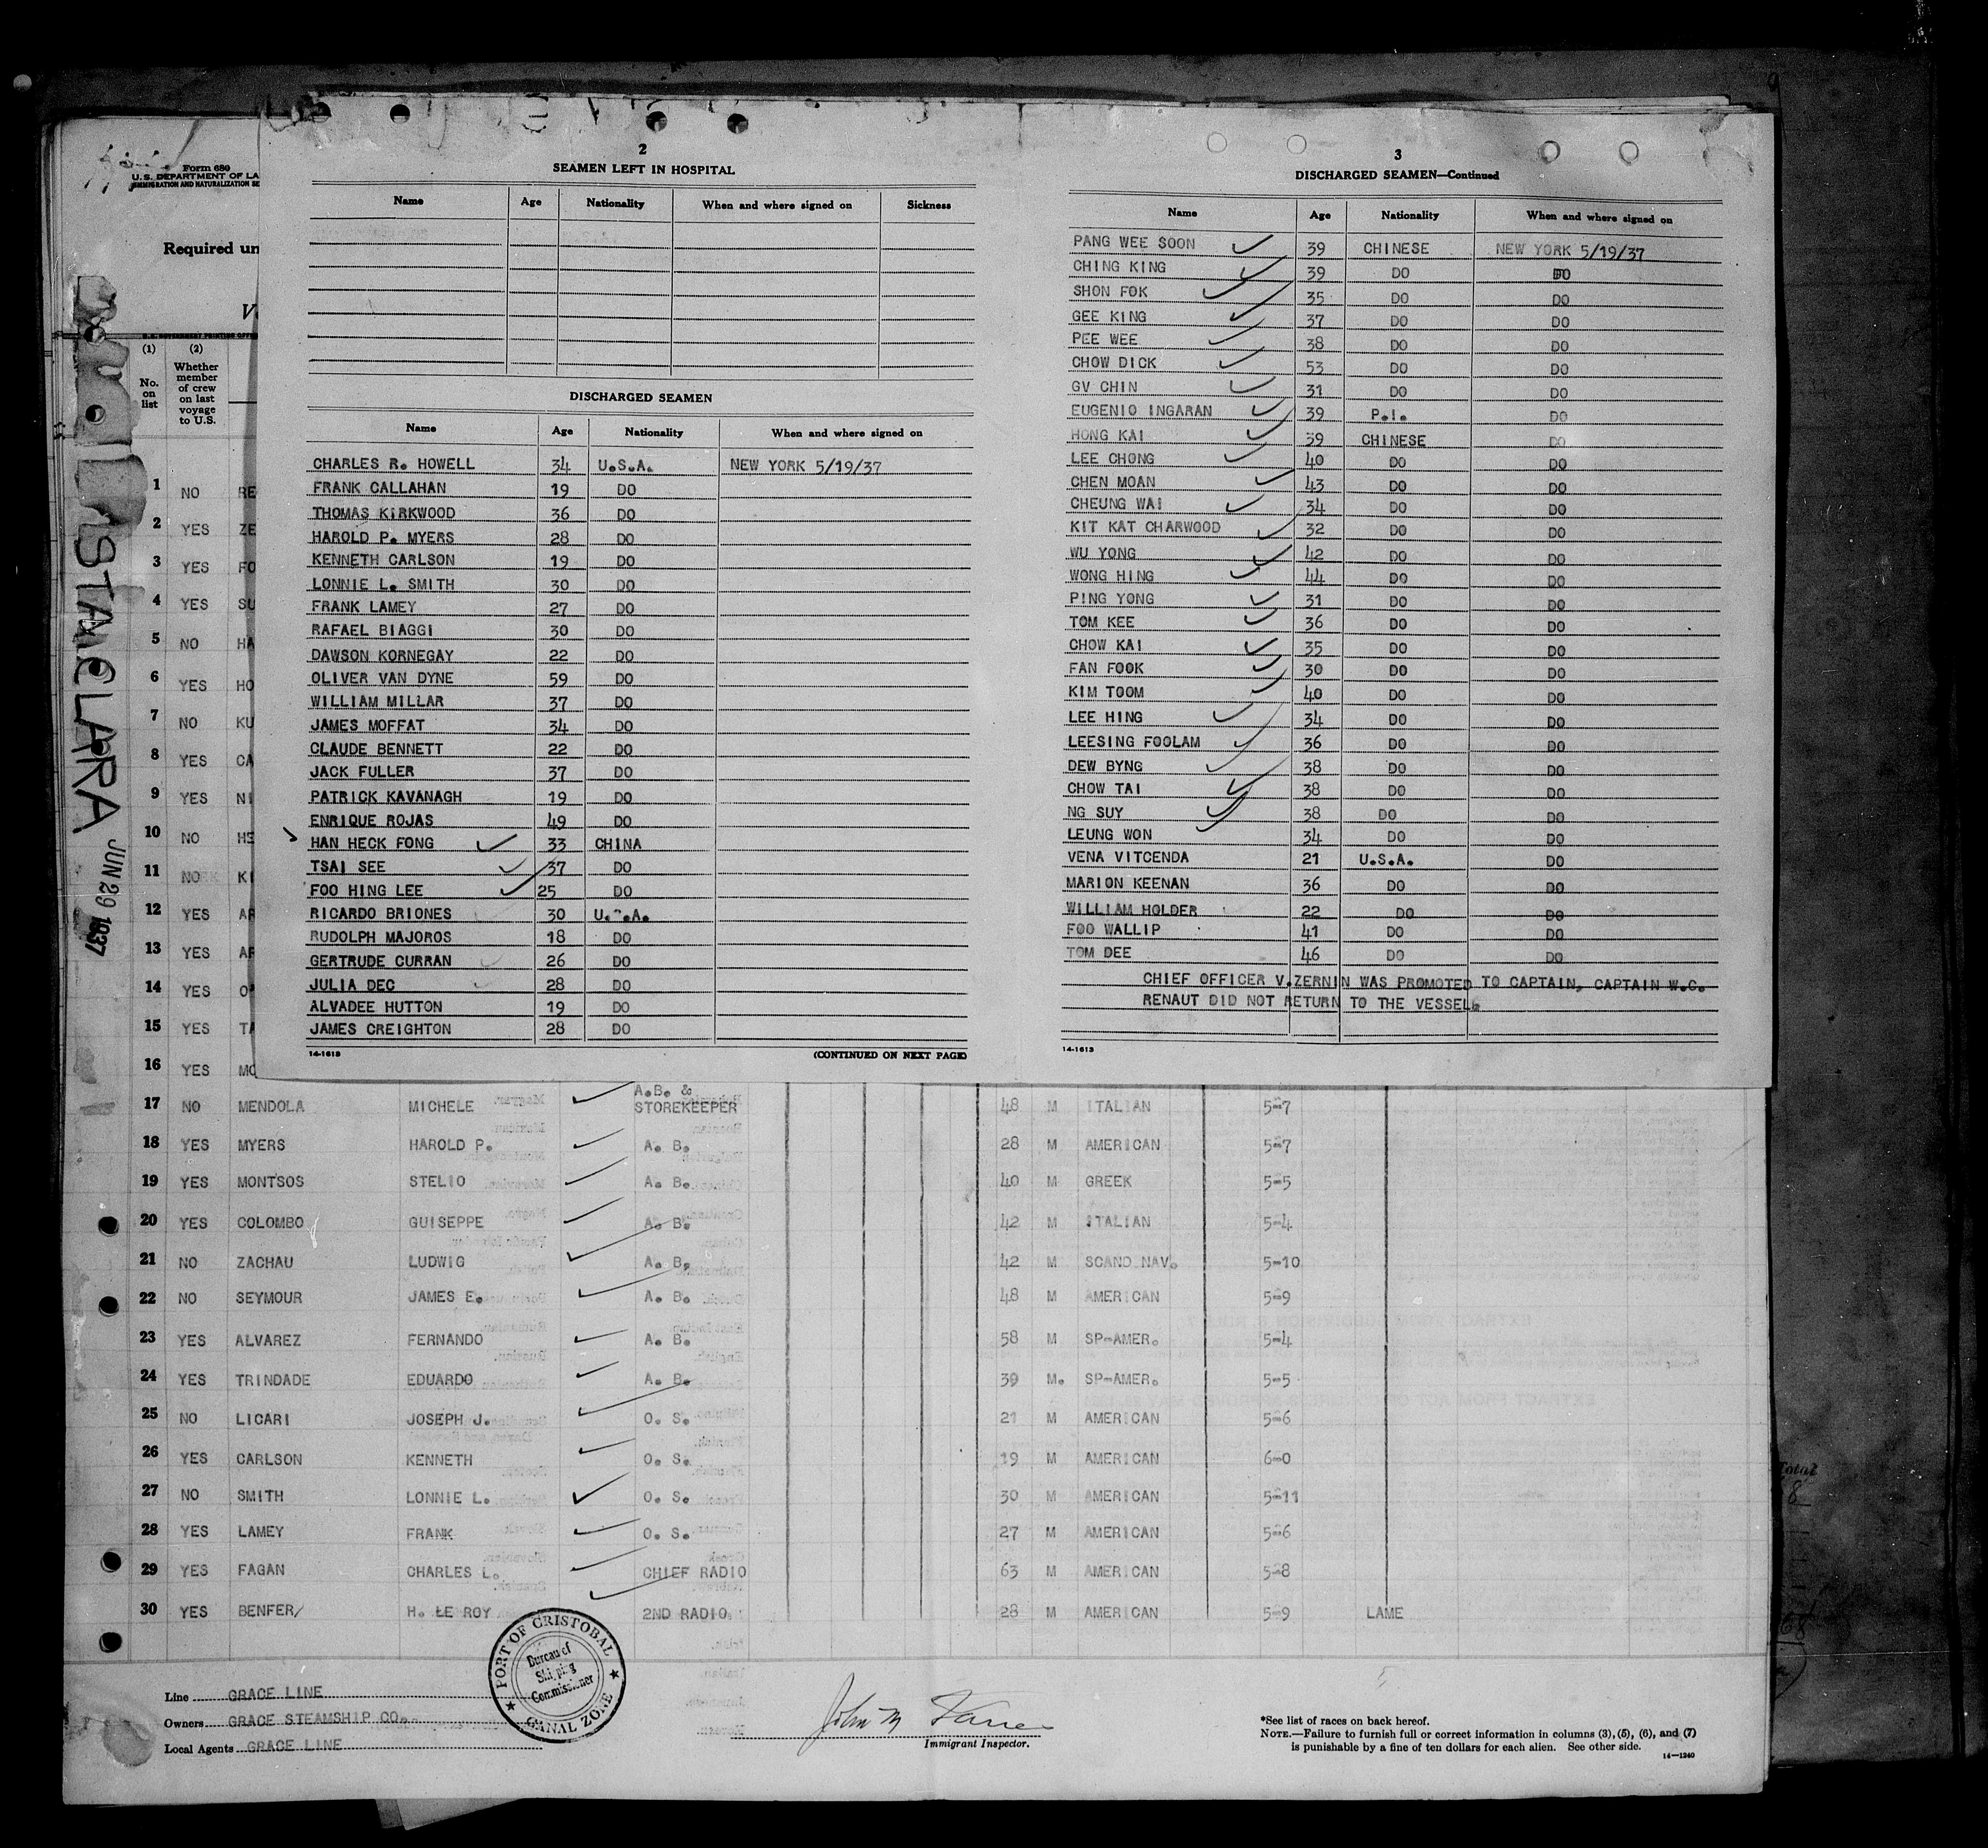 Form 680
U.S. DEPARTMENT OF LA
IMMIGRATION AND NATURALIZATION SE
Required un
(1) (2)
No. on list
Whether member of crew on last voyage to U.S.
STA CLARA JUN 29 1937
1 NO RE
2 YES ZE
3 YES FO
4 YES SU
5 NO HA
6 YES HO
7 NO KU
8 YES CA
9 YES NI
10 NO HE
11 NO KI
12 YES AR
13 YES AR
14 YES
15 YES TA
16 YES MO
2
SEAMEN LEFT IN HOSPITAL
Name Age Nationality When and where signed on Sickness
DISCHARGED SEAMEN
Name Age Nationality When and where signed on
CHARLES R. HOWELL 34 U.S.A. NEW YORK 5/19/37
FRANK CALLAHAN 19 DO
THOMAS KIRKWOOD 36 DO
HAROLD P. MYERS 28 DO
KENNETH CARLSON 19 DO
LONNIE L. SMITH 30 DO
FRANK LAMEY 27 DO
RAFAEL BIAGGI 30 DO
DAWSON KORNEGAY 22 DO
OLIVER VAN DYNE 59 DO
WILLIAM MILLAR 37 DO
JAMES MOFFAT 34 DO
CLAUDE BENNETT 22 DO
JACK FULLER 37 DO
PATRICK KAVANAGH 19 DO
ENRIQUE ROJAS 49 DO
HAN HECK FONG 33 CHINA
TSAI SEE 37 DO
FOO HING LEE 25 DO
RICARDO BRIONES 30 U.S.A.
RUDOLPH MAJOROS 18 DO
GERTRUDE CURRAN 26 DO
JULIA DEC 28 DO
ALVADEE HUTTON 19 DO
JAMES CREIGHTON 28 DO
14-1613 (CONTINUED ON NEXT PAGE)
3
DISCHARGED SEAMEN—Continued
Name Age Nationality When and where signed on
PANG WEE SOON 39 CHINESE NEW YORK 5/19/37
CHING KING 39 DO DO
SHON FOK 35 DO DO
GEE KING 37 DO DO
PEE WEE 38 DO DO
CHOW DICK 53 DO DO
GV CHIN 31 DO DO
EUGENIO INGARAN 39 P.I. DO
HONG KAI 39 CHINESE DO
LEE CHONG 40 DO DO
CHEN MOAN 43 DO DO
CHEUNG WAI 34 DO DO
KIT KAT CHARWOOD 32 DO DO
WU YONG 42 DO DO
WONG HING 44 DO DO
PING YONG 31 DO DO
TOM KEE 36 DO DO
CHOW KAI 35 DO DO
FAN FOOK 30 DO DO
KIM TOOM 40 DO DO
LEE HING 34 DO DO
LEESING FOOLAM 36 DO DO
DEW BYNG 38 DO DO
CHOW TAI 38 DO DO
NG SUY 38 DO DO
LEUNG WON 34 DO DO
VENA VITCENDA 21 U.S.A. DO
MARION KEENAN 36 DO DO
WILLIAM HOLDER 22 DO DO
FOO WALLIP 41 DO DO
TOM DEE 46 DO DO
CHIEF OFFICER V.ZERNIN WAS PROMOTED TO CAPTAIN, CAPTAIN W.C.
RENAUT DID NOT RETURN TO THE VESSEL.
14-1613
17 NO MENDOLA MICHELE A.B. & STOREKEEPER 48 M ITALIAN 5-7
18 YES MYERS HAROLD P. A. B. 28 M AMERICAN 5-7
19 YES MONTSOS STELIO A. B. 40 M GREEK 5-5
20 YES COLOMBO GUISEPPE A. B. 42 M ITALIAN 5-4
21 NO ZACHAU LUDWIG A. B. 42 M SCAND NAV. 5-10
22 NO SEYMOUR JAMES E. A. B. 48 M AMERICAN 5-9
23 YES ALVAREZ FERNANDO A. B. 58 M SP-AMER. 5-4
24 YES TRINDADE EDUARDO A. B. 39 M. SP-AMER. 5-5
25 NO LICARI JOSEPH J. O. S. 21 M AMERICAN 5-6
26 YES CARLSON KENNETH O. S. 19 M AMERICAN 6-0
27 NO SMITH LONNIE L. O. S. 30 M AMERICAN 5-11
28 YES LAMEY FRANK O. S. 27 M AMERICAN 5-6
29 YES FAGAN CHARLES L. CHIEF RADIO 63 M AMERICAN 5-8
30 YES BENFER H. LE ROY 2ND RADIO 28 M AMERICAN 5-9 LAME
Total
8
68
PORT OF CRISTOBAL
Bureau of
Shipping
Commissioner
CANAL ZONE
Line GRACE LINE
Owners GRACE STEAMSHIP CO.
Local Agents GRACE LINE
John M
Immigrant Inspector.
*See list of races on back hereof.
NOTE.—Failure to furnish full or correct information in columns (3), (5), (6), and (7)
is punishable by a fine of ten dollars for each alien. See other side.
14—1240